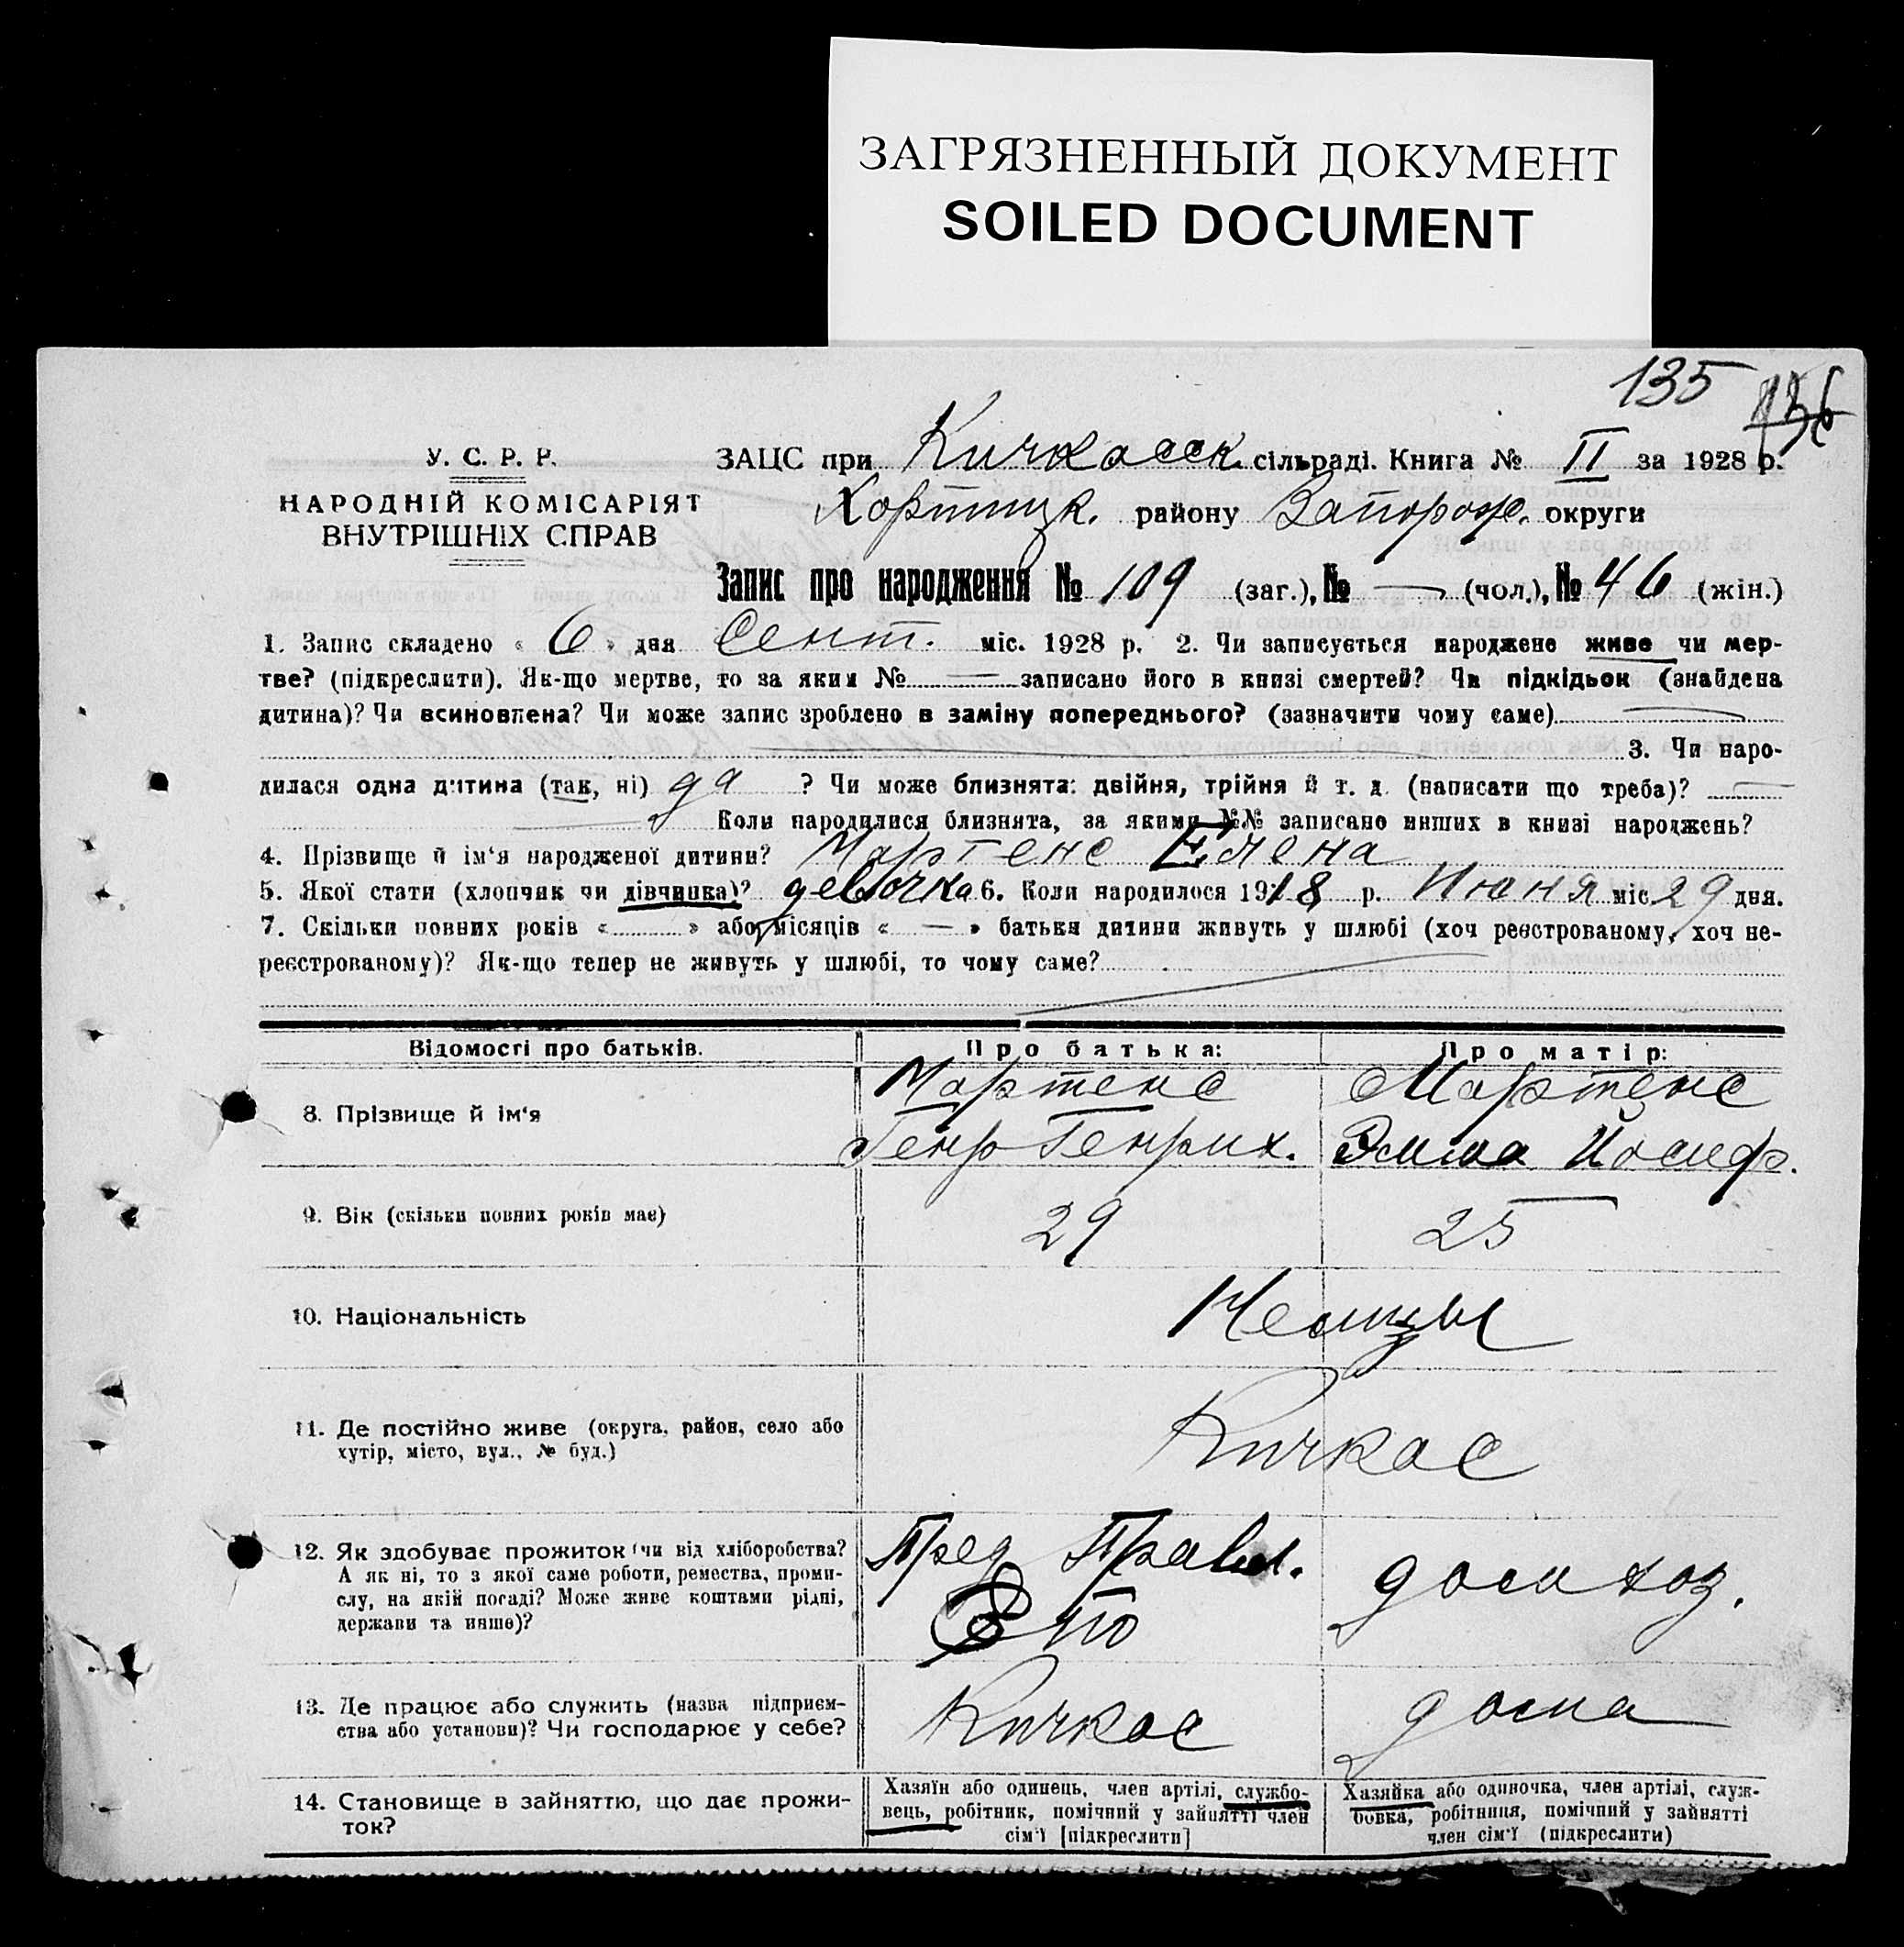 ЗАГРЯЗНЕННЫЙ ДОКУМЕНТ
SOILED DOCUMENT
135 136
У. С. Р. Р.
НАРОДНІЙ КОМІСАРІЯТ
ВНУТРІШНІХ СПРАВ
ЗАЦС при Кичкасск. сільраді. Книга № II за 1928 р.
Хортицк. району Запорож. округи
Запис про народження № 109 (заг.), № — (чол.), № 46 (жін.)
1. Запис складено « 6 » дня Сент. міс. 1928 р. 2. Чи записується народжене живе чи мер-
тве? (підкреслити). Як-що мертве, то за яким № — записано його в книзі смертей? Чи підкідьок (знайдена
дитина)? Чи всиновлена? Чи може запис зроблено в заміну попереднього? (зазначити чому саме) —
3. Чи наро-
дилася одна дитина (так, ні) да ? Чи може близнята: двійня, трійня й т. д. (написати що треба)? —
— Коли народилися близнята, за якими №№ записано инших в книзі народжень?
4. Прізвище й ім'я народженої дитини? Мартенс Елена
5. Якої стати (хлопчик чи дівчинка)? девочка 6. Коли народилося 1918 р. Июня міс. 29 дня.
7. Скільки повних років « » або місяців « — » батьки дитини живуть у шлюбі (хоч реєстрованому, хоч не-
реєстрованому)? Як-що тепер не живуть у шлюбі, то чому саме?
Відомості про батьків.
Про батька:
Про матір:
8. Прізвище й ім'я
Мартенс
Генр Генрих.
Мартенс
Эмма Иосиф.
9. Вік (скільки повних років має)
29
25
10. Національність
Немцы
11. Де постійно живе (округа, район, село або
хутір, місто, вул., № буд.)
Кичкас
12. Як здобуває прожиток (чи від хліборобства?
А як ні, то з якої саме роботи, ремества, проми-
слу, на якій посаді? Може живе коштами рідні,
держави та инше)?
Пред Правл.
ЕПО
дом хоз.
13. Де працює або служить (назва підприєм-
ства або установи)? Чи господарює у себе?
Кичкас
дома
14. Становище в зайняттю, що дає прожи-
ток?
Хазяїн або одинець, член артілі, службо-
вець, робітник, помічний у зайнятті член
сім'ї [підкреслити]
Хазяйка або одиночка, член артілі, служ-
бовка, робітниця, помічний у зайнятті
член сім'ї (підкреслити)